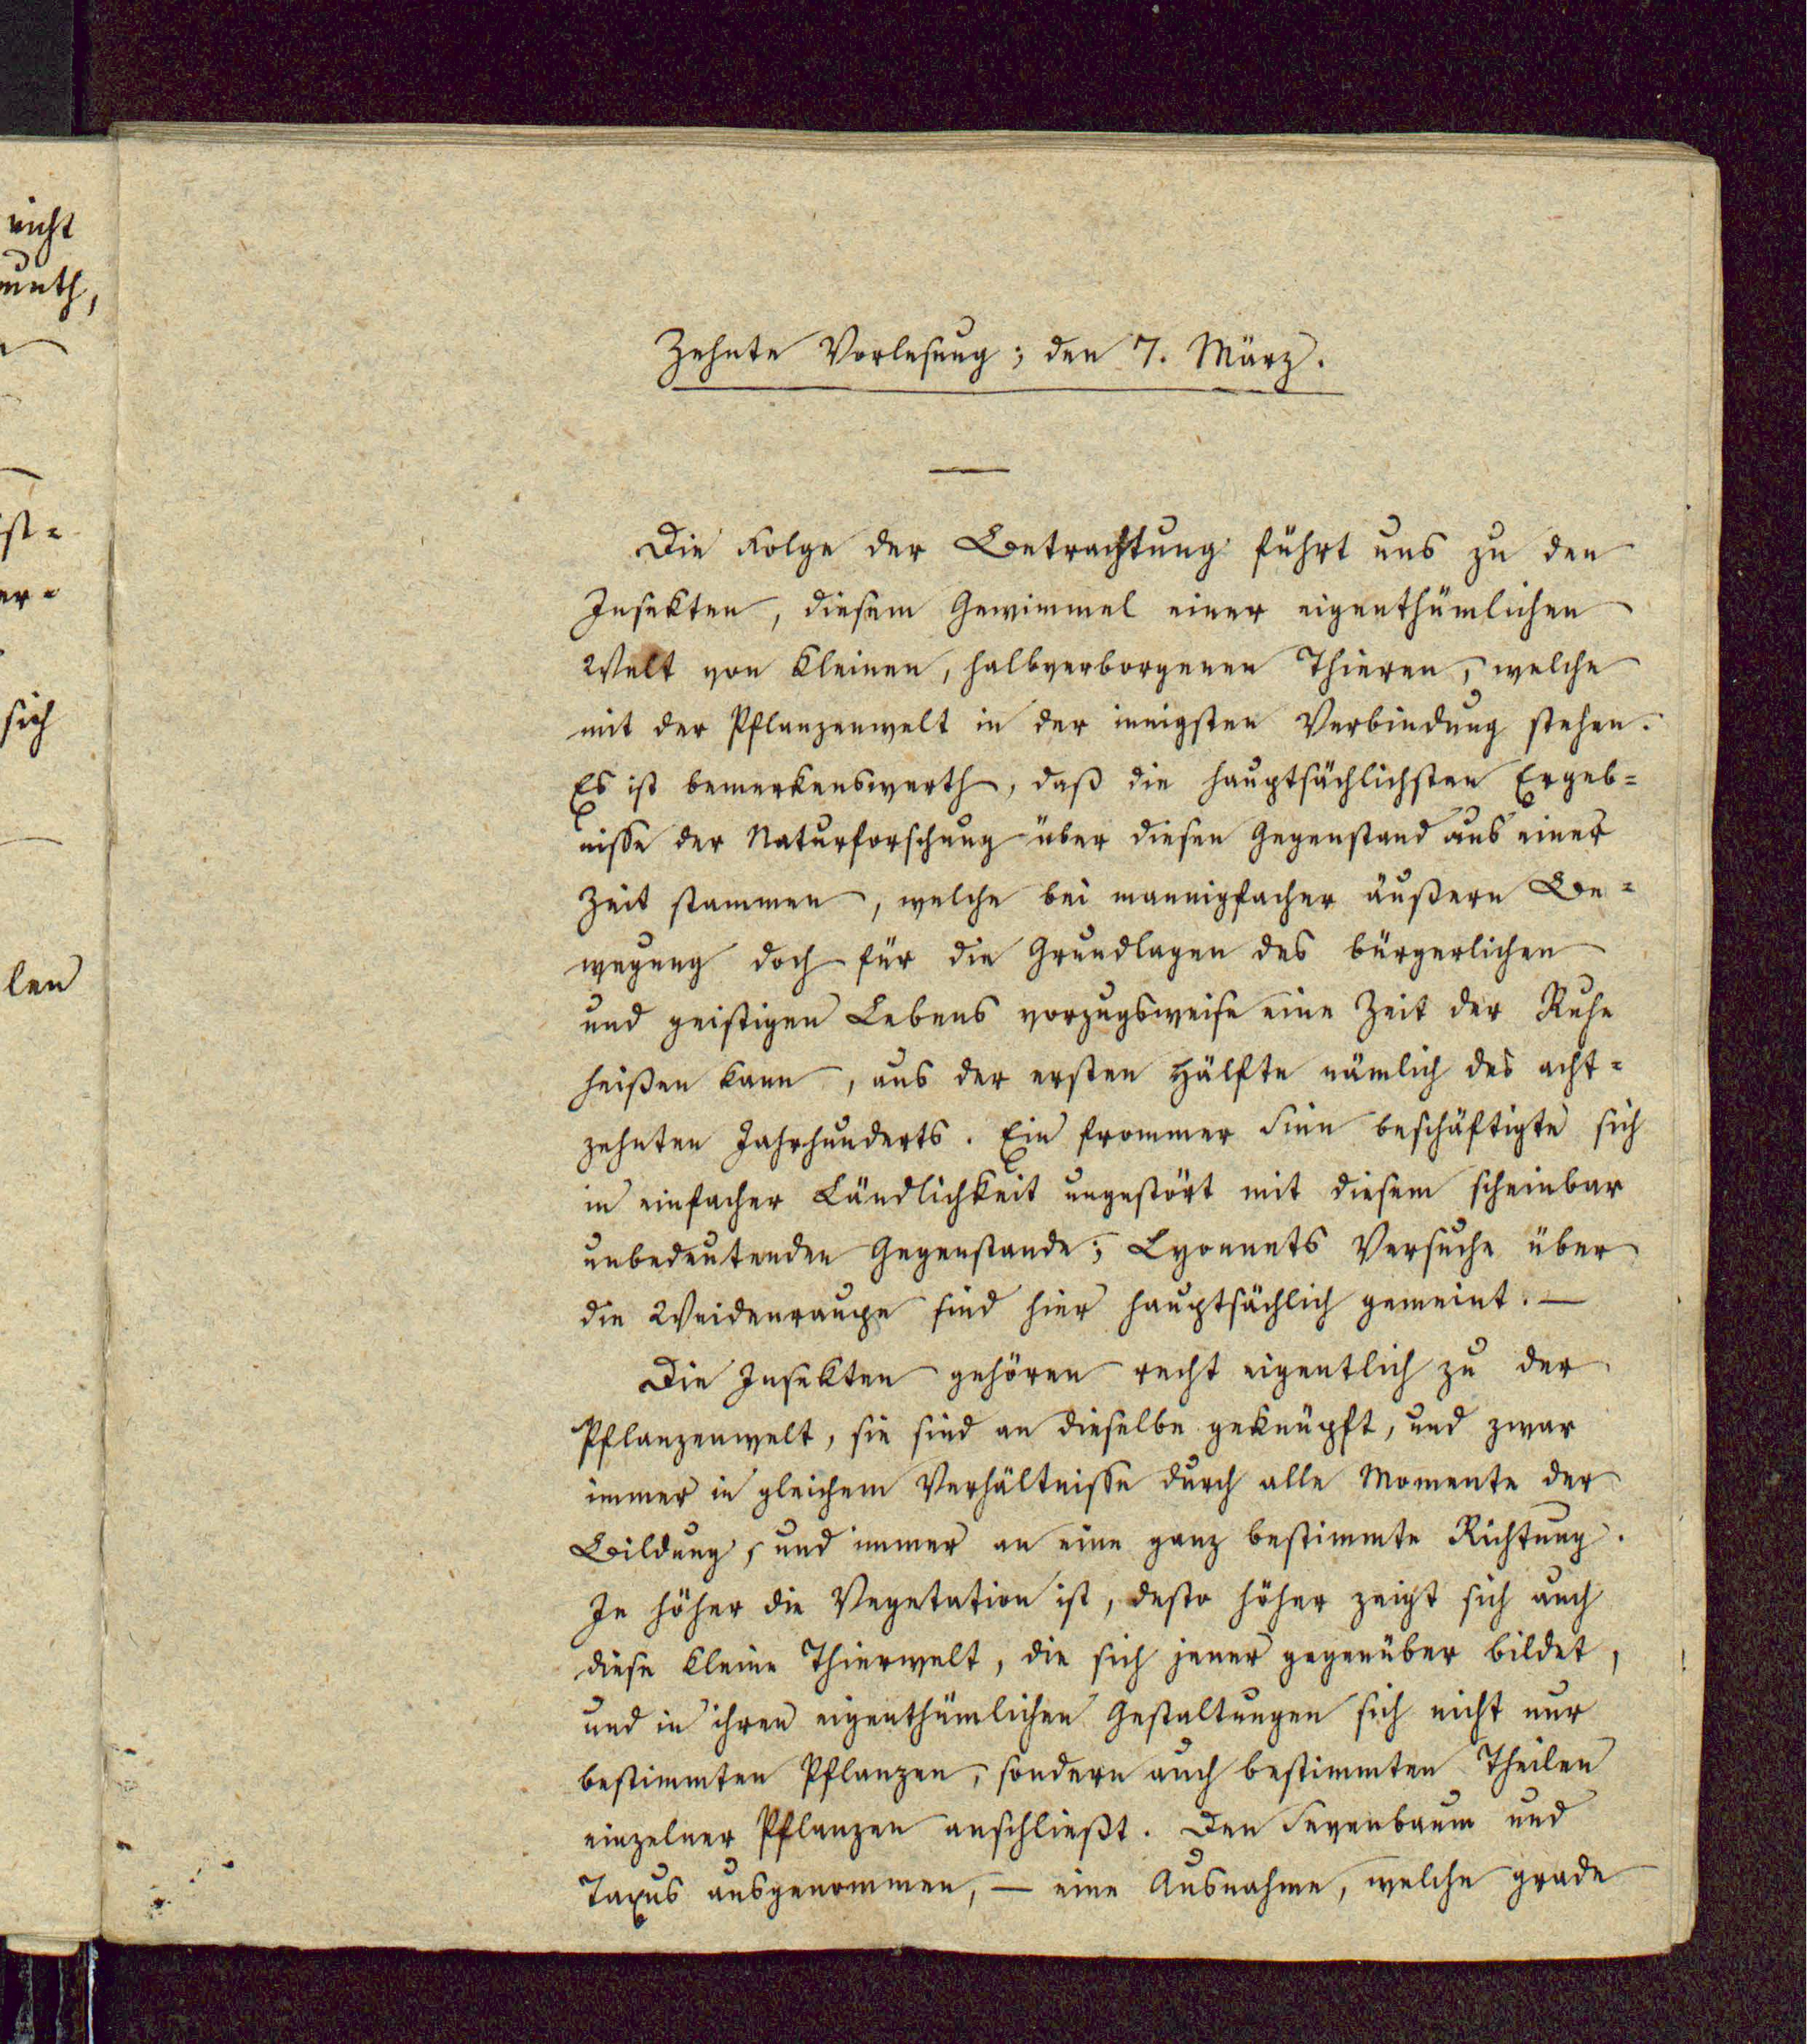 nicht
muth,
ist-
er-
sich
len
Zehnte Vorlesung; den 7. März.
Die Folge der Betrachtung führt uns zu den
Insekten, diesem Gewimmel einer eigenthümlichen
Welt von kleinen, halbverborgenen Thieren, welche
mit der Pflanzenwelt in der innigsten Verbindung stehen.
Es ist bemerkenswerth, daß die hauptsächlichsten Ergeb-
nisse der Naturforschung über diesen Gegenstand aus einer
Zeit stammen, welche bei mannigfacher äußern Be-
wegung doch für die Grundlagen des bürgerlichen
und geistigen Lebens vorzugsweise eine Zeit der Ruhe
heißen kann, aus der ersten Hälfte nämlich des acht-
zehnten Jahrhunderts. Ein frommer Sinn beschäftigte sich
in einfacher Ländlichkeit ungestört mit diesem scheinbar
unbedeutenden Gegenstande; Lyonnets Versuche über
die Weidenraupe sind hier hauptsächlich gemeint. —
Die Insekten gehören recht eigentlich zu der
Pflanzenwelt, sie sind an dieselbe geknüpft, und zwar
immer in gleichem Verhältnisse durch alle Momente der
Bildung, und immer an eine ganz bestimmte Richtung.
Je höher die Vegetation ist, desto höher zeigt sich auch
diese kleine Thierwelt, die sich jener gegenüber bildet,
und in ihren eigenthümlichen Gestaltungen sich nicht nur
bestimmten Pflanzen, sondern auch bestimmten Theilen
einzelner Pflanzen anschließt. Den Sevenbaum und
Taxus ausgenommen, — eine Ausnahme, welche grade